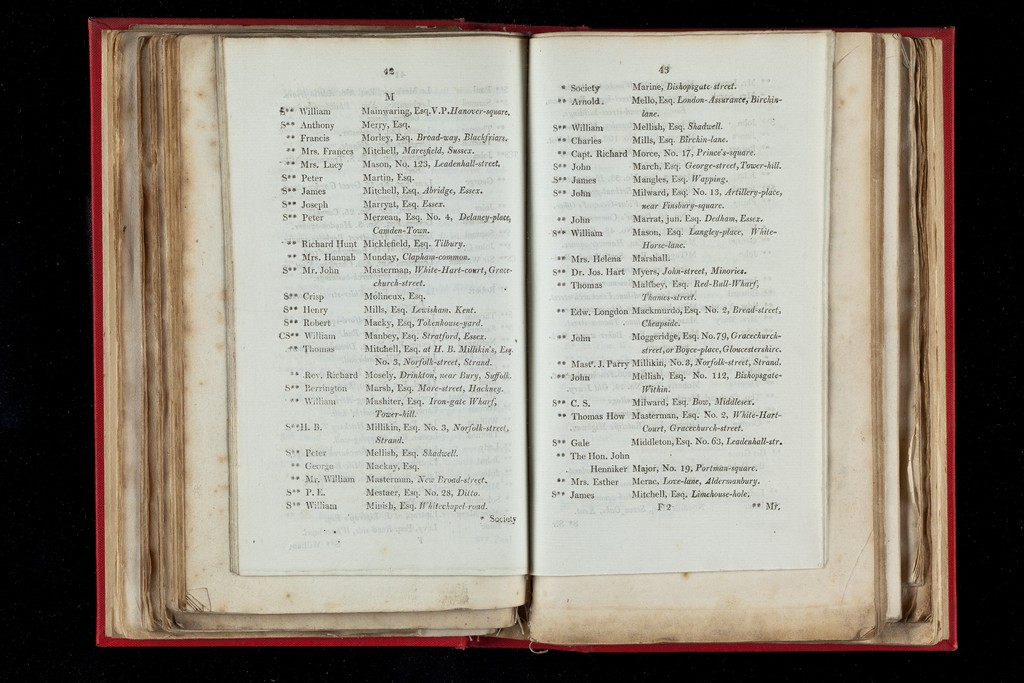 42
M
S** William Mainwaring, Esq. V.P. Hanover-square.
S** Anthony Merry, Esq.
** Francis Morley, Esq. Broad-way, Blackfriars.
** Mrs. Frances Mitchell, Maresfield, Sussex.
** Mrs. Lucy Mason, No. 123, Leadenhall-street.
S** Peter Martin, Esq.
S** James Mitchell, Esq. Abridge, Essex.
S** Joseph Marryat, Esq. Essex.
S** Peter Merzeau, Esq. No. 4, Delancy-place,
Camden-Town.
** Richard Hunt Micklefield, Esq. Tilbury.
** Mrs. Hannah Munday, Clapham-common.
S** Mr. John Masterman, White-Hart-court, Grace-
church-street.
S** Crisp Molineux, Esq.
S** Henry Mills, Esq. Lewisham, Kent.
S** Robert Macky, Esq, Tokenhouse-yard.
CS** William Manbey, Esq. Stratford, Essex.
** Thomas Mitchell, Esq. at H. B. Millikin's, Esq.
No. 3, Norfolk-street, Strand.
** Rev. Richard Mosely, Drinkton, near Bury, Suffolk.
S** Berrington Marsh, Esq. Mare-street, Hackney.
** William Mashiter, Esq. Iron-gate Wharf,
Tower-hill.
S** H. B. Millikin, Esq. No. 3, Norfolk-street,
Strand.
S** Peter Mellish, Esq. Shadwell.
** George Mackay, Esq.
** Mr. William Masterman, New Broad-street.
S** P. E. Mestaer, Esq. No. 28, Ditto.
S** William Minish, Esq. Whitechapel-road.
* Society
43
* Society Marine, Bishopsgate-street.
** Arnold Mello, Esq. London-Assurance, Birchin-
lane.
S** William Mellish, Esq. Shadwell.
** Charles Mills, Esq. Birchin-lane.
** Capt. Richard Morce, No. 17, Prince's-square.
S** John March, Esq. George-street, Tower-hill.
S** James Mangles, Esq. Wapping.
S** John Milward, Esq. No. 13, Artillery-place,
near Finsbury-square.
** John Marrat, jun. Esq. Dedham, Essex.
S** William Mason, Esq. Langley-place, White-
Horse-lane.
** Mrs. Helena Marshall.
S** Dr. Jos. Hart Myers, John-street, Minories.
** Thomas Maltbey, Esq. Red-Bull-Wharf,
Thames-street.
** Edw. Longdon Mackmurdo, Esq. No. 2, Bread-street,
Cheapside.
** John Moggeridge, Esq. No. 79, Gracechurch-
street, or Boyce-place, Gloucestershire.
** Mast. J. Parry Millikin, No. 3, Norfolk-street, Strand.
** John Mellish, Esq. No. 112, Bishopsgate-
Within.
S** C. S. Milward, Esq. Bow, Middlesex.
** Thomas How Masterman, Esq. No. 2, White-Hart-
Court, Gracechurch-street.
S** Gale Middleton, Esq. No. 63, Leadenhall-str.
** The Hon. John
Henniker Major, No. 19, Portman-square.
** Mrs. Esther Merac, Love-lane, Aldermanbury.
S** James Mitchell, Esq. Limehouse-hole.
F 2 ** Mr.